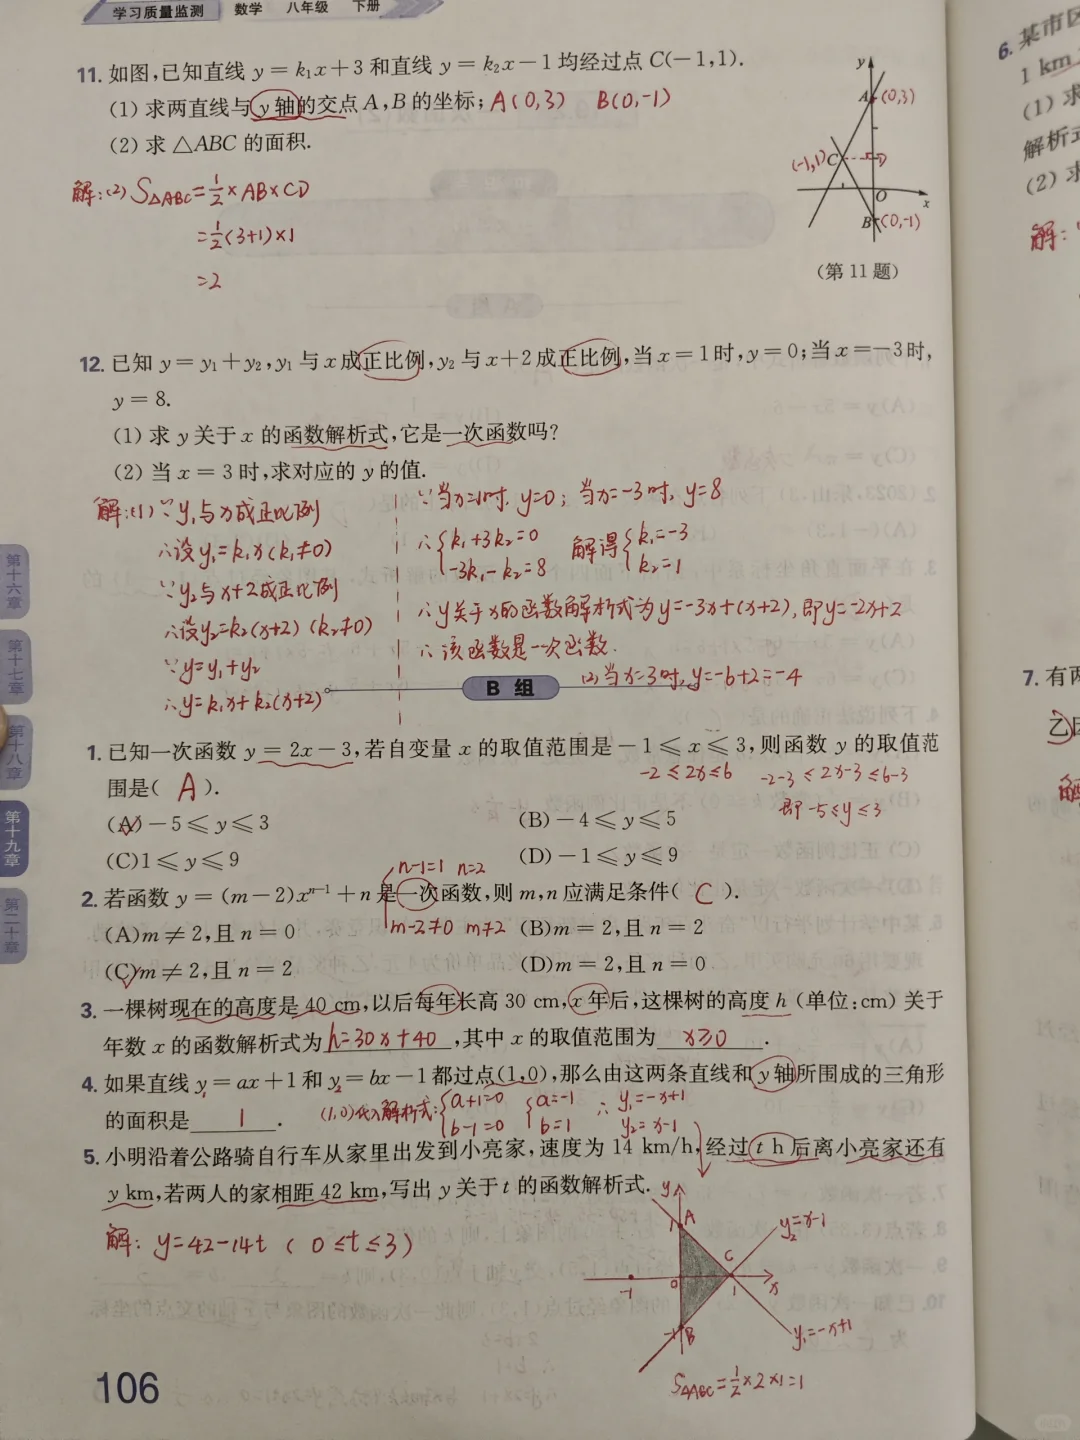 学习质量监测 数学 八年级 下册
11. 如图,已知直线 y = k₁x+3 和直线 y = k₂x-1 均经过点 C(-1,1).
(1) 求两直线与 y 轴的交点 A,B 的坐标; A(0,3) B(0,-1)
(2) 求 △ABC 的面积.
解:(2) S△ABC=½×AB×CD
=½(3+1)×1
=2
y
A (0,3)
(-1,1) C D
O x
B (0,-1)
(第 11 题)
12. 已知 y = y₁+y₂,y₁ 与 x 成正比例,y₂ 与 x+2 成正比例,当 x=1 时,y=0;当 x=-3 时,
y = 8.
(1) 求 y 关于 x 的函数解析式,它是一次函数吗?
(2) 当 x = 3 时,求对应的 y 的值.
解:(1) ∵y₁与x成正比例
∴设y₁=k₁x(k₁≠0)
∵y₂与x+2成正比例
∴设y₂=k₂(x+2) (k₂≠0)
∵y=y₁+y₂
∴y=k₁x+k₂(x+2)
∵当x=1时, y=0; 当x=-3时, y=8
∴{k₁+3k₂=0 解得{k₁=-3
-3k₁-k₂=8 k₂=1
∴y关于x的函数解析式为y=-3x+(x+2), 即y=-2x+2
∴该函数是一次函数.
(2) 当x=3时, y=-6+2=-4
B 组
1. 已知一次函数 y = 2x-3,若自变量 x 的取值范围是 -1≤x≤3,则函数 y 的取值范
围是( A ).
-2≤2x≤6 -2-3≤2x-3≤6-3
即-5≤y≤3
(A)-5≤y≤3 (B)-4≤y≤5
(C)1≤y≤9 (D)-1≤y≤9
n-1=1 n=2
2. 若函数 y = (m-2)xⁿ⁻¹+n 是一次函数,则 m,n 应满足条件( C ).
m-2≠0 m≠2
(A)m≠2,且 n=0 (B)m=2,且 n=2
(C)m≠2,且 n=2 (D)m=2,且 n=0
3. 一棵树现在的高度是 40 cm,以后每年长高 30 cm,x 年后,这棵树的高度 h (单位:cm) 关于
年数 x 的函数解析式为 h=30x+40 ,其中 x 的取值范围为 x≥0 .
4. 如果直线 y₁=ax+1 和 y₂=bx-1 都过点(1,0),那么由这两条直线和 y 轴所围成的三角形
的面积是 1 .
(1,0)代入解析式:{a+1=0 {a=-1 ∴y₁=-x+1
b-1=0 b=1 y₂=x-1
5. 小明沿着公路骑自行车从家里出发到小亮家,速度为 14 km/h,经过 t h 后离小亮家还有
y km,若两人的家相距 42 km,写出 y 关于 t 的函数解析式.
解: y=42-14t ( 0≤t≤3)
y
1 A
y₂=x-1
C
-1 0 1 x
-1 B
y₁=-x+1
S△ABC=½×2×1=1
106
第十六章
第十七章
第十八章
第十九章
第二十章
6. 某市区
1 km
(1) 求
解析式
(2) 求
解:
7. 有两
乙
解